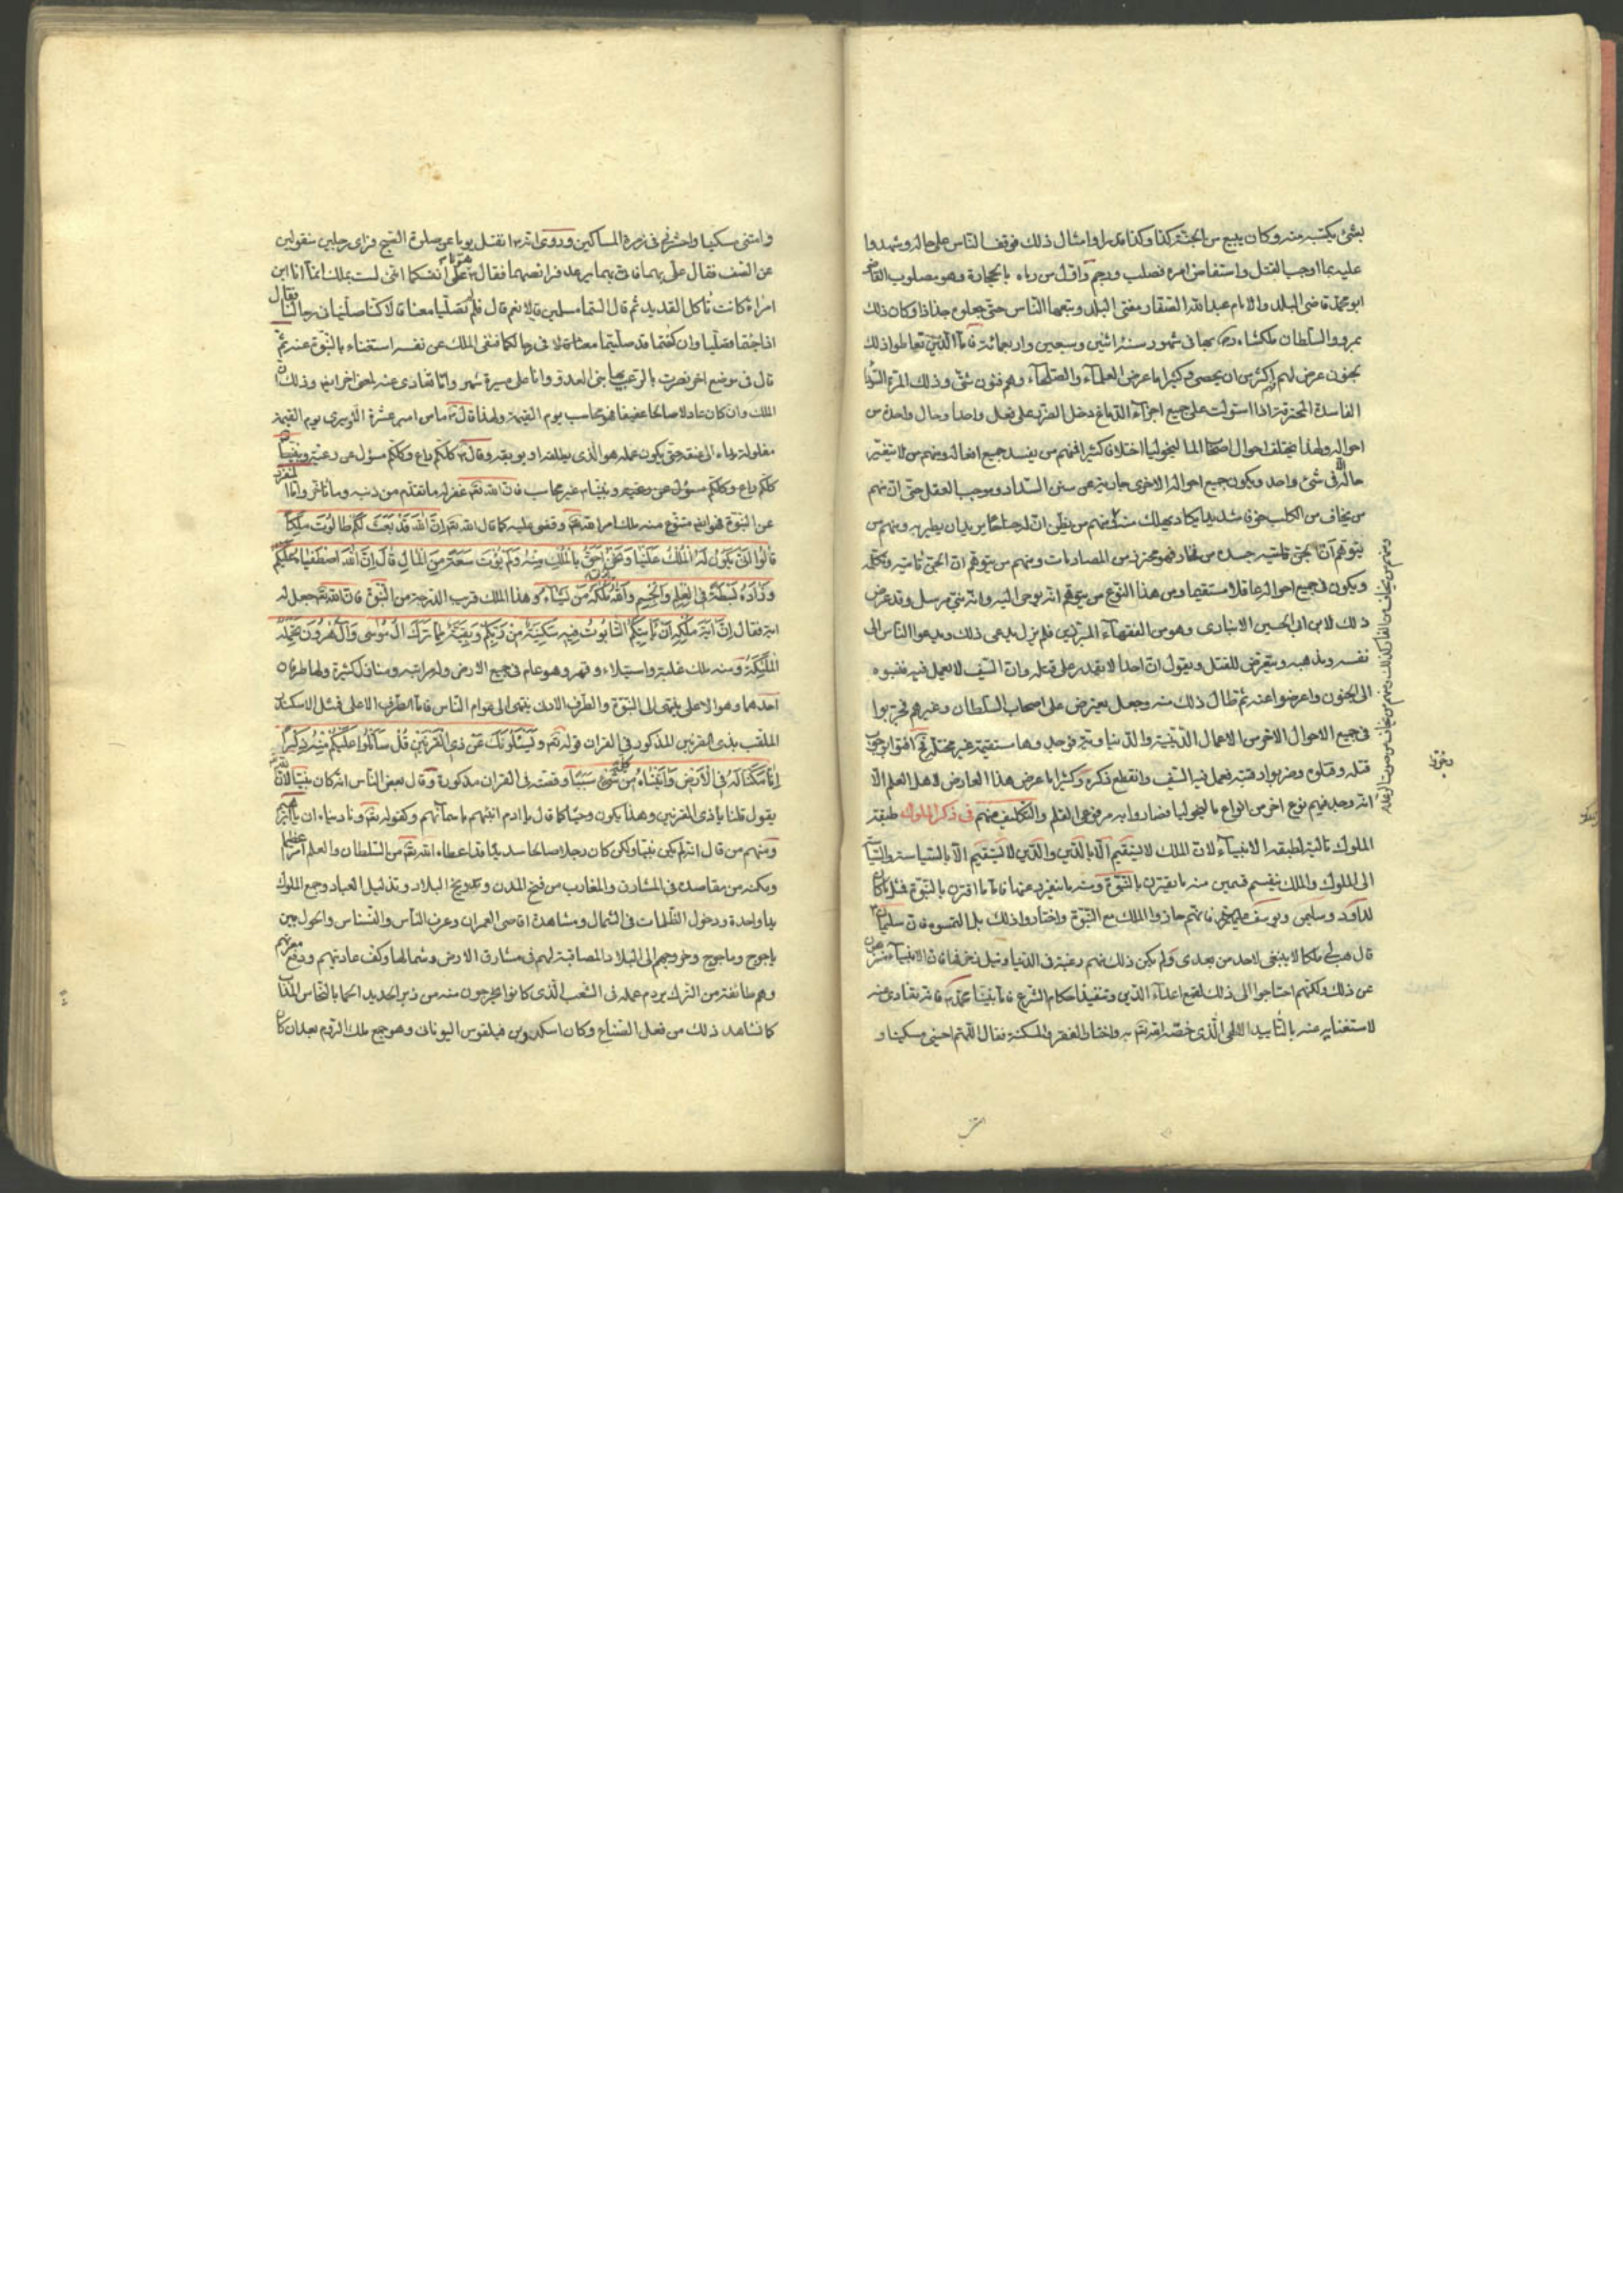 بشئ يكتبه منه وكان يبيع من الجنّة كذا وكذا قدرا وامثال ذلك فوقف الناس على حاله وشهدوا
عليه بما اوجب القتل واستفاض امره فصلب ورجم واوّل من رماه بالحجارة وهو مصلوب القاضى
ابو محمد قاضى البلد والامام عبد الله الصفار مفتى البلد وتبعهما النّاس حتى جعلوه جذاذا وكان ذلك
بمرو والسلطان ملكشاه بها فى شهور سنة اثنين وسبعين واربعمائة فامّا الّذين تعاطوا ذلك
بجنون عرض لهم اكثر من ان يحصى وكثيرا ما عرض العلمآء والصلحآء وهم فنون شتّى وذلك انّ المرّة السّودا
الفاسدة المحترقة اذا استولت على جميع اجزآء الدّماغ دخل الضرر على فعل واحد او حال واحدة من
احواله ولهذا يختلف احوال اصحاب الماليخوليا اختلافا كثيرا فمنهم من يفسد جميع افعاله ومنهم من لا يتغيّر
حاله الّا فى شئ واحد ويكون جميع احواله الاخرى جارية على سنن السّداد وموجب العقل حتى انّ منهم
من يخاف من الكلب خوفا شديدا يكاد يهلك منه ومنهم من يظنّ انّ له جناحا يريد ان يطير به ومنهم من
يتوهم انّ جسده من فخار فهو محترز من المصادمات ومنهم من يتوهم انّ الجنّ تأتيه وتكلّمه
ويكون فى جميع احواله عاقلا مستقيما ومن هذا النّوع من يتوهّم انّه يوحى اليه وانّه نبىّ مرسل وقد عرض
ذلك لابن ابى الحسين الانبارى وهو من الفقهآء المبرّزين فلم يزل يدعى ذلك ويدعوا الناس الى
نفسه ومذهبه ويتعرّض للقتل ويقول انّ احدا لا يقدر على قتله وانّ السّيف لا يعمل فيه فنسبوه
الى الجنون واعرضوا عنه ثم طال ذلك منه وجعل يعترض على اصحاب السلطان وغيرهم فجرّبوا
فى جميع الاحوال الاخر من الاعمال الدّينيّة والدّنياويّة فوجدوها مستقيمة غير مختلّة فافتوا بوجوب
قتله وقتلوه وضربوا رقبته فعمل فيه السّيف وانقطع ذكره وكثيرا ما عرض هذا العارض لاهل العلم الّا
انّه وجد فيهم نوع اخر من انواع ماليخوليا فصاروا به مرفوعى القلم والتّكليف عنهم فى ذكر الملوك طبقة
الملوك تالية لطبقة الانبيآء لانّ الملك لا يستقيم الّا بالدّين والدّين لا يستقيم الّا بالسّياسة والسّياسة
الى الملوك والملك ينقسم قسمين منه ما يقترن بالنّبوّة ومنه ما ينفرد عنها فامّا ما اقترن بالنّبوّة فمثل ما كان
لداود وسليمن ويوسف فانّهم حازوا الملك مع النّبوّة واختاروا ذلك بل التمسوه فانّ سليمان
قال هب لى ملكا لا ينبغى لاحد من بعدى ولم يكن ذلك منهم رغبة فى الدّنيا ونيل نعيمها فانّ الانبيآء منزّهون
عن ذلك ولكنّهم احتاجوا الى ذلك لقمع اعدآء الدّين وتنفيذ احكام الشّرع فامّا نبيّنا محمّد فانّه تفادى منه
لاستغنايه عنه بالتّأييد الالهى الّذى خصّه الله به واختار الفقر والمسكنة فقال اللّهمّ احينى مسكينا و
ومنهم من يخاف من الفار كذلك ومنهم من يخاف من صوت الرعد
وامتنى مسكينا واحشرنى فى زمرة المساكين وروى انّه انفتل يوما عن صلوة الصّبح فراى رجلين منفردين
عن الصّف فقال علىّ بهما فاتى بهما يرعد فرائصهما فقال هوّنا على انفسكما انّنى لست بملك انّما انا ابن
امراة كانت تأكل القديد ثم قال الستما مسلمين قالا نعم قال فلم لم تصلّيا معنا قالا كنّا صلّينا فى رحالنا فقال
اذا جئتما فصلّيا وان كنتما قد صلّيتما فى رحالكما فنفى الملك عن نفسه استغناء بالنّبوّة عنه ثمّ
قال فى موضع اخر نصرت بالرّعب بينى العدو وانا على مسيرة شهر وانّما تفادى عنه لمعنى اخر ايضا وذلك انّ
الملك وان كان عادلا صالحا عفيفا فهو يحاسب يوم القيمة ولهذا قال ما من امير عشرة الّا ويرى يوم القيمة
مغلولة يداه الى عنقه حتى يكون عمله هو الّذى يطلقه او يوبقه وقال كلّكم راع وكلّكم مسؤل عن رعيته ونبيّنا
عن النّبوّة فهو ايضا متنوّع منه ملك امر الله وقضى عليه كما قال الله انّ الله قد بعث لكم طالوت ملكا
قالوا انّى يكون له الملك علينا ونحن احقّ بالملك منه ولم يؤت سعة من المال قال انّ الله اصطفيه عليكم
وزاده بسطة فى العلم والجسم والله يؤتى ملكه من يشآء وهذا الملك قريب الدّرجة من النّبوّة فانّ الله جعل له
اية فقال انّ اية ملكه ان يأتيكم التّابوت فيه سكينة من ربّكم وبقيّة ممّا ترك ال موسى وال هرون تحمله
الملئكة ومنه ملك غلبة واستيلاء وقهر وهو عام فى جميع الارض وله مراتب ومنازل كثيرة ولها طرفان
احدهما وهو الاعلى ينتهى الى النّبوّة والطّرف الادنى ينتهى الى عوام النّاس فامّا الطّرف الاعلى فمثل الاسكندر
الملقّب بذى القرنين المذكور فى القران قوله ويسئلونك عن ذى القرنين قل سأتلوا عليكم منه ذكرا
انّا مكّنّا له فى الارض واتيناه من كلّ شئ سببا وقصته فى القران مذكورة وقال بعض النّاس انّه كان نبيّا لانّ الله
يقول قلنا يا ذى القرنين وهذا يكون وحيا كما قال يا ادم انبئهم باسمآئهم وكقوله وناديناه ان يا ابرهيم
ومنهم من قال انّه لم يكن نبيّا ولكن كان رجلا صالحا سديدا قد اعطاه الله من السّلطان والعلم امرا عظيما
ومكّنه من مقاصده فى المشارق والمغارب من فتح المدن وتدويخ البلاد وتذليل العباد وجمع الملوك
يدا واحدة ودخول الظّلمات فى الشّمال ومشاهدة اقاصى العمران وعرف النّاس والنّسناس والحول بين
ياجوج وماجوج وخروجهم الى البلاد المصاقبة لهم فى مشارق الارض وشمالها وكفّ عاديتهم ودفع معرّتهم
وهم طائفة من التّرك بردم عمله فى الشّعب الّذى كانوا يخرجون منه من زبر الحديد احكاما بالنّحاس المذاب
كما نشاهد ذلك من فعل الصّنّاع وكان اسكندر بن فيلقوس اليونانى وهو جمع ملك الرّوم بعد ان كان